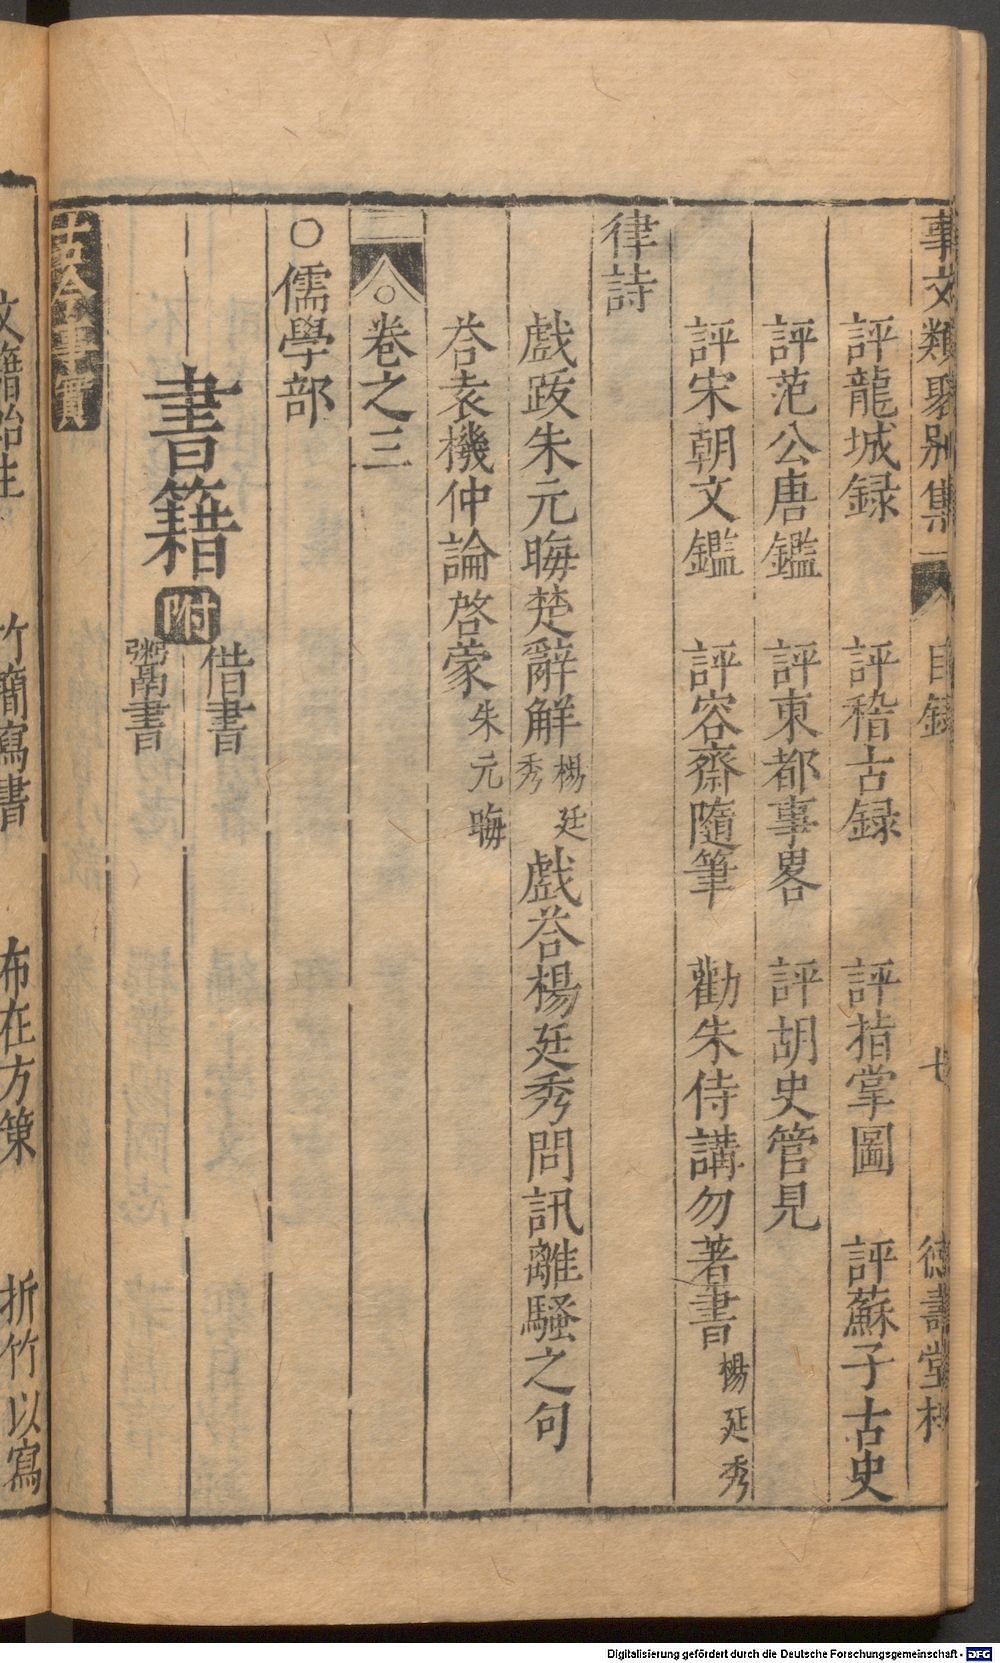 事文類聚別集 目錄 七 德壽堂梓
評龍城録 評稽古録 評指掌圖 評蘇子古史
評范公唐鑑 評東都事畧 評胡史管見
評宋朝文鑑 評容齋隨筆 勸朱侍講勿著書 楊廷秀
律詩
戯跋朱元晦楚辭解 楊廷秀 戯荅楊廷秀問訊離騷之句
荅袁機仲論啓蒙 朱元晦
○卷之三
○儒學部
書籍 附 借書
鬻書
古今事實
文籍始生 竹簡寫書 布在方策 折竹以寫
Digitalisierung gefördert durch die Deutsche Forschungsgemeinschaft - DFG